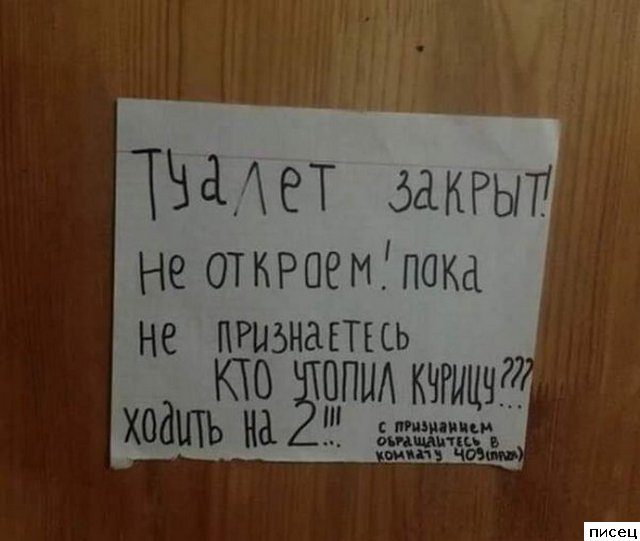 Туалет закрыт!
не откроем! пока
не признаетесь
кто утопил курицу???...
ходить на 2!!!
с признанием
обращайтесь в
комнату 409(прав)
писец